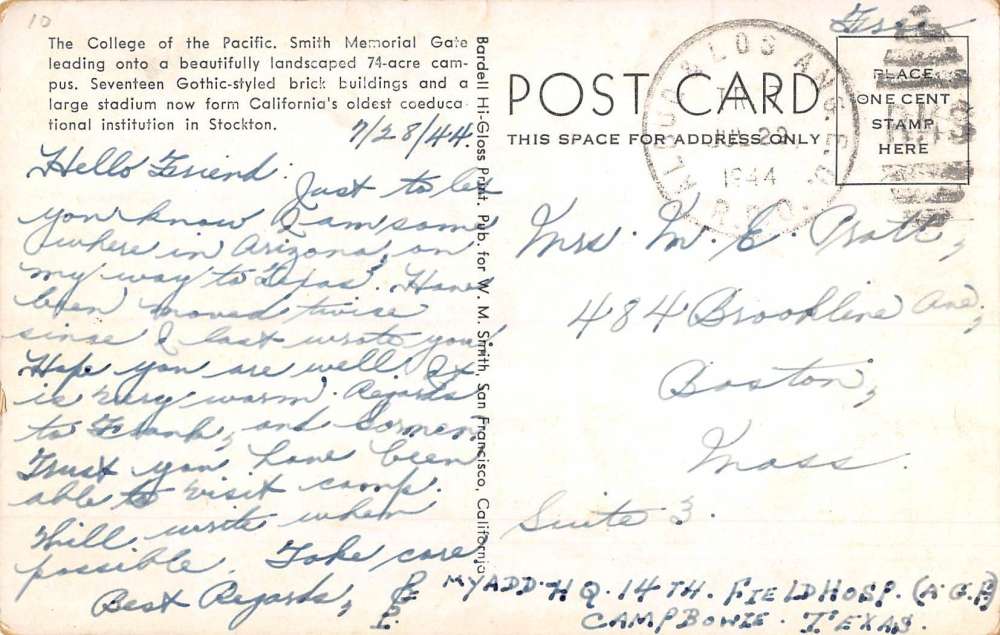 10
The College of the Pacific. Smith Memorial Gate
leading onto a beautifully landscaped 74-acre cam-
pus. Seventeen Gothic-styled brick buildings and a
large stadium now form California's oldest coeduca-
tional institution in Stockton.
7/28/44.
Hello Friend:
Just to let
you know I am some
where in Arizona, on
my way to Texas. Have
been moved twise
since I last wrote you.
Hope you are well. It
is very warm. Regards
to Frank, and
Trust you have been
able to visit camp.
Will write when
possible. Take care
Best Regards,
Bardell Hi-Gloss Print. Pub. for W. M. Smith, San Francisco, California
POST CARD
THIS SPACE FOR ADDRESS ONLY
Free
PLACE
ONE CENT
STAMP
HERE
LOS ANG.
1944
R.P.O.
Mrs. M. E. Pratt,
484 Brookline Ave,
Boston,
Mass.
Suite 3.
MY ADD. HQ. 14TH. FIELD HOSP. (A.G.F.)
CAMP BOWIE. TEXAS.